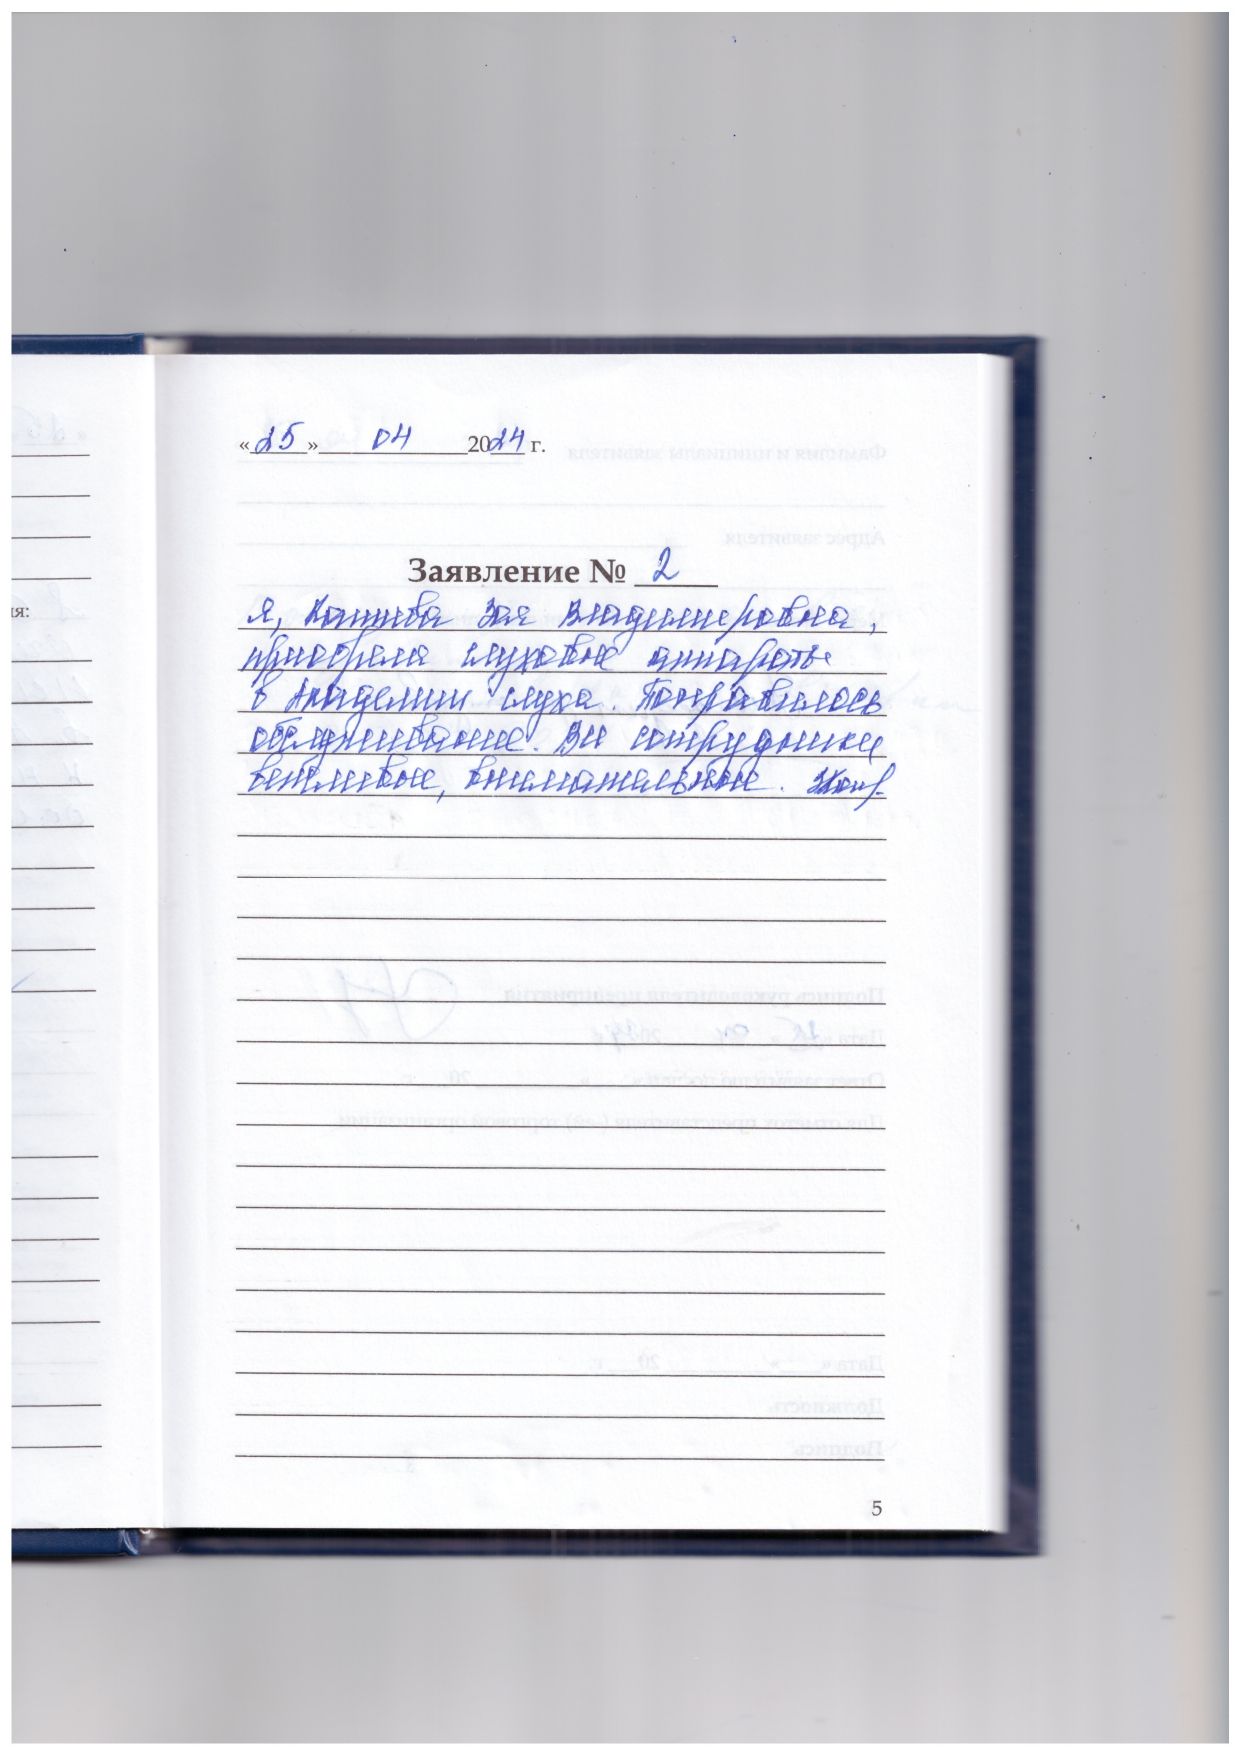 «25» 04 2024 г.
Заявление № 2
Я, Зоя Владимировна,
приобрела слуховые аппараты
в Академии слуха. Понравилось
обслуживание. Все сотрудники
вежливые, внимательные.
ия:
5